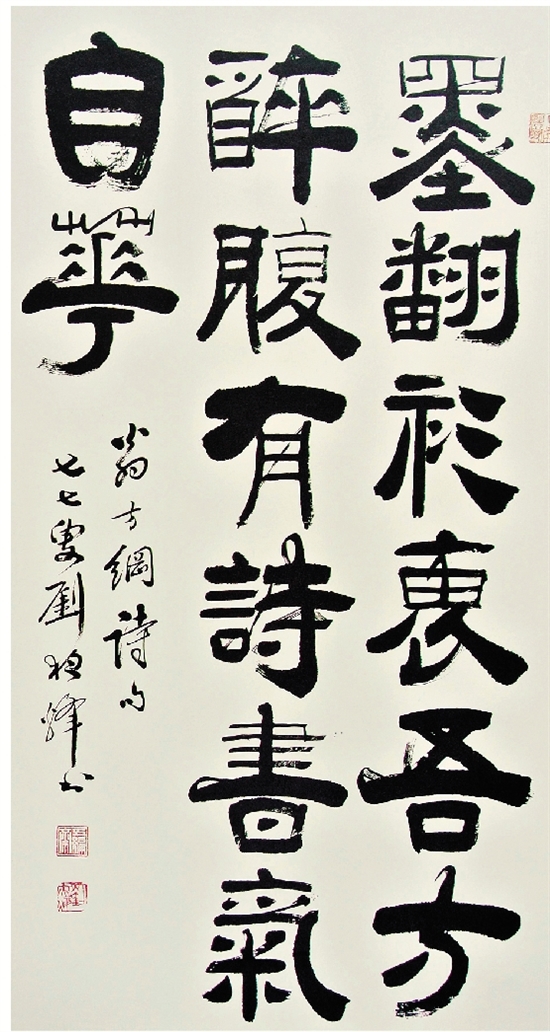 墨翻衫吾方
醉腹有詩書氣
自華
翁方綱詩句
七七叟劉書